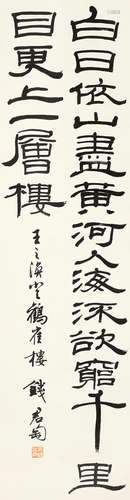 白日依山盡黃河入海流欲窮千里
目更上一層樓
王之渙登鶴雀樓 錢君匋